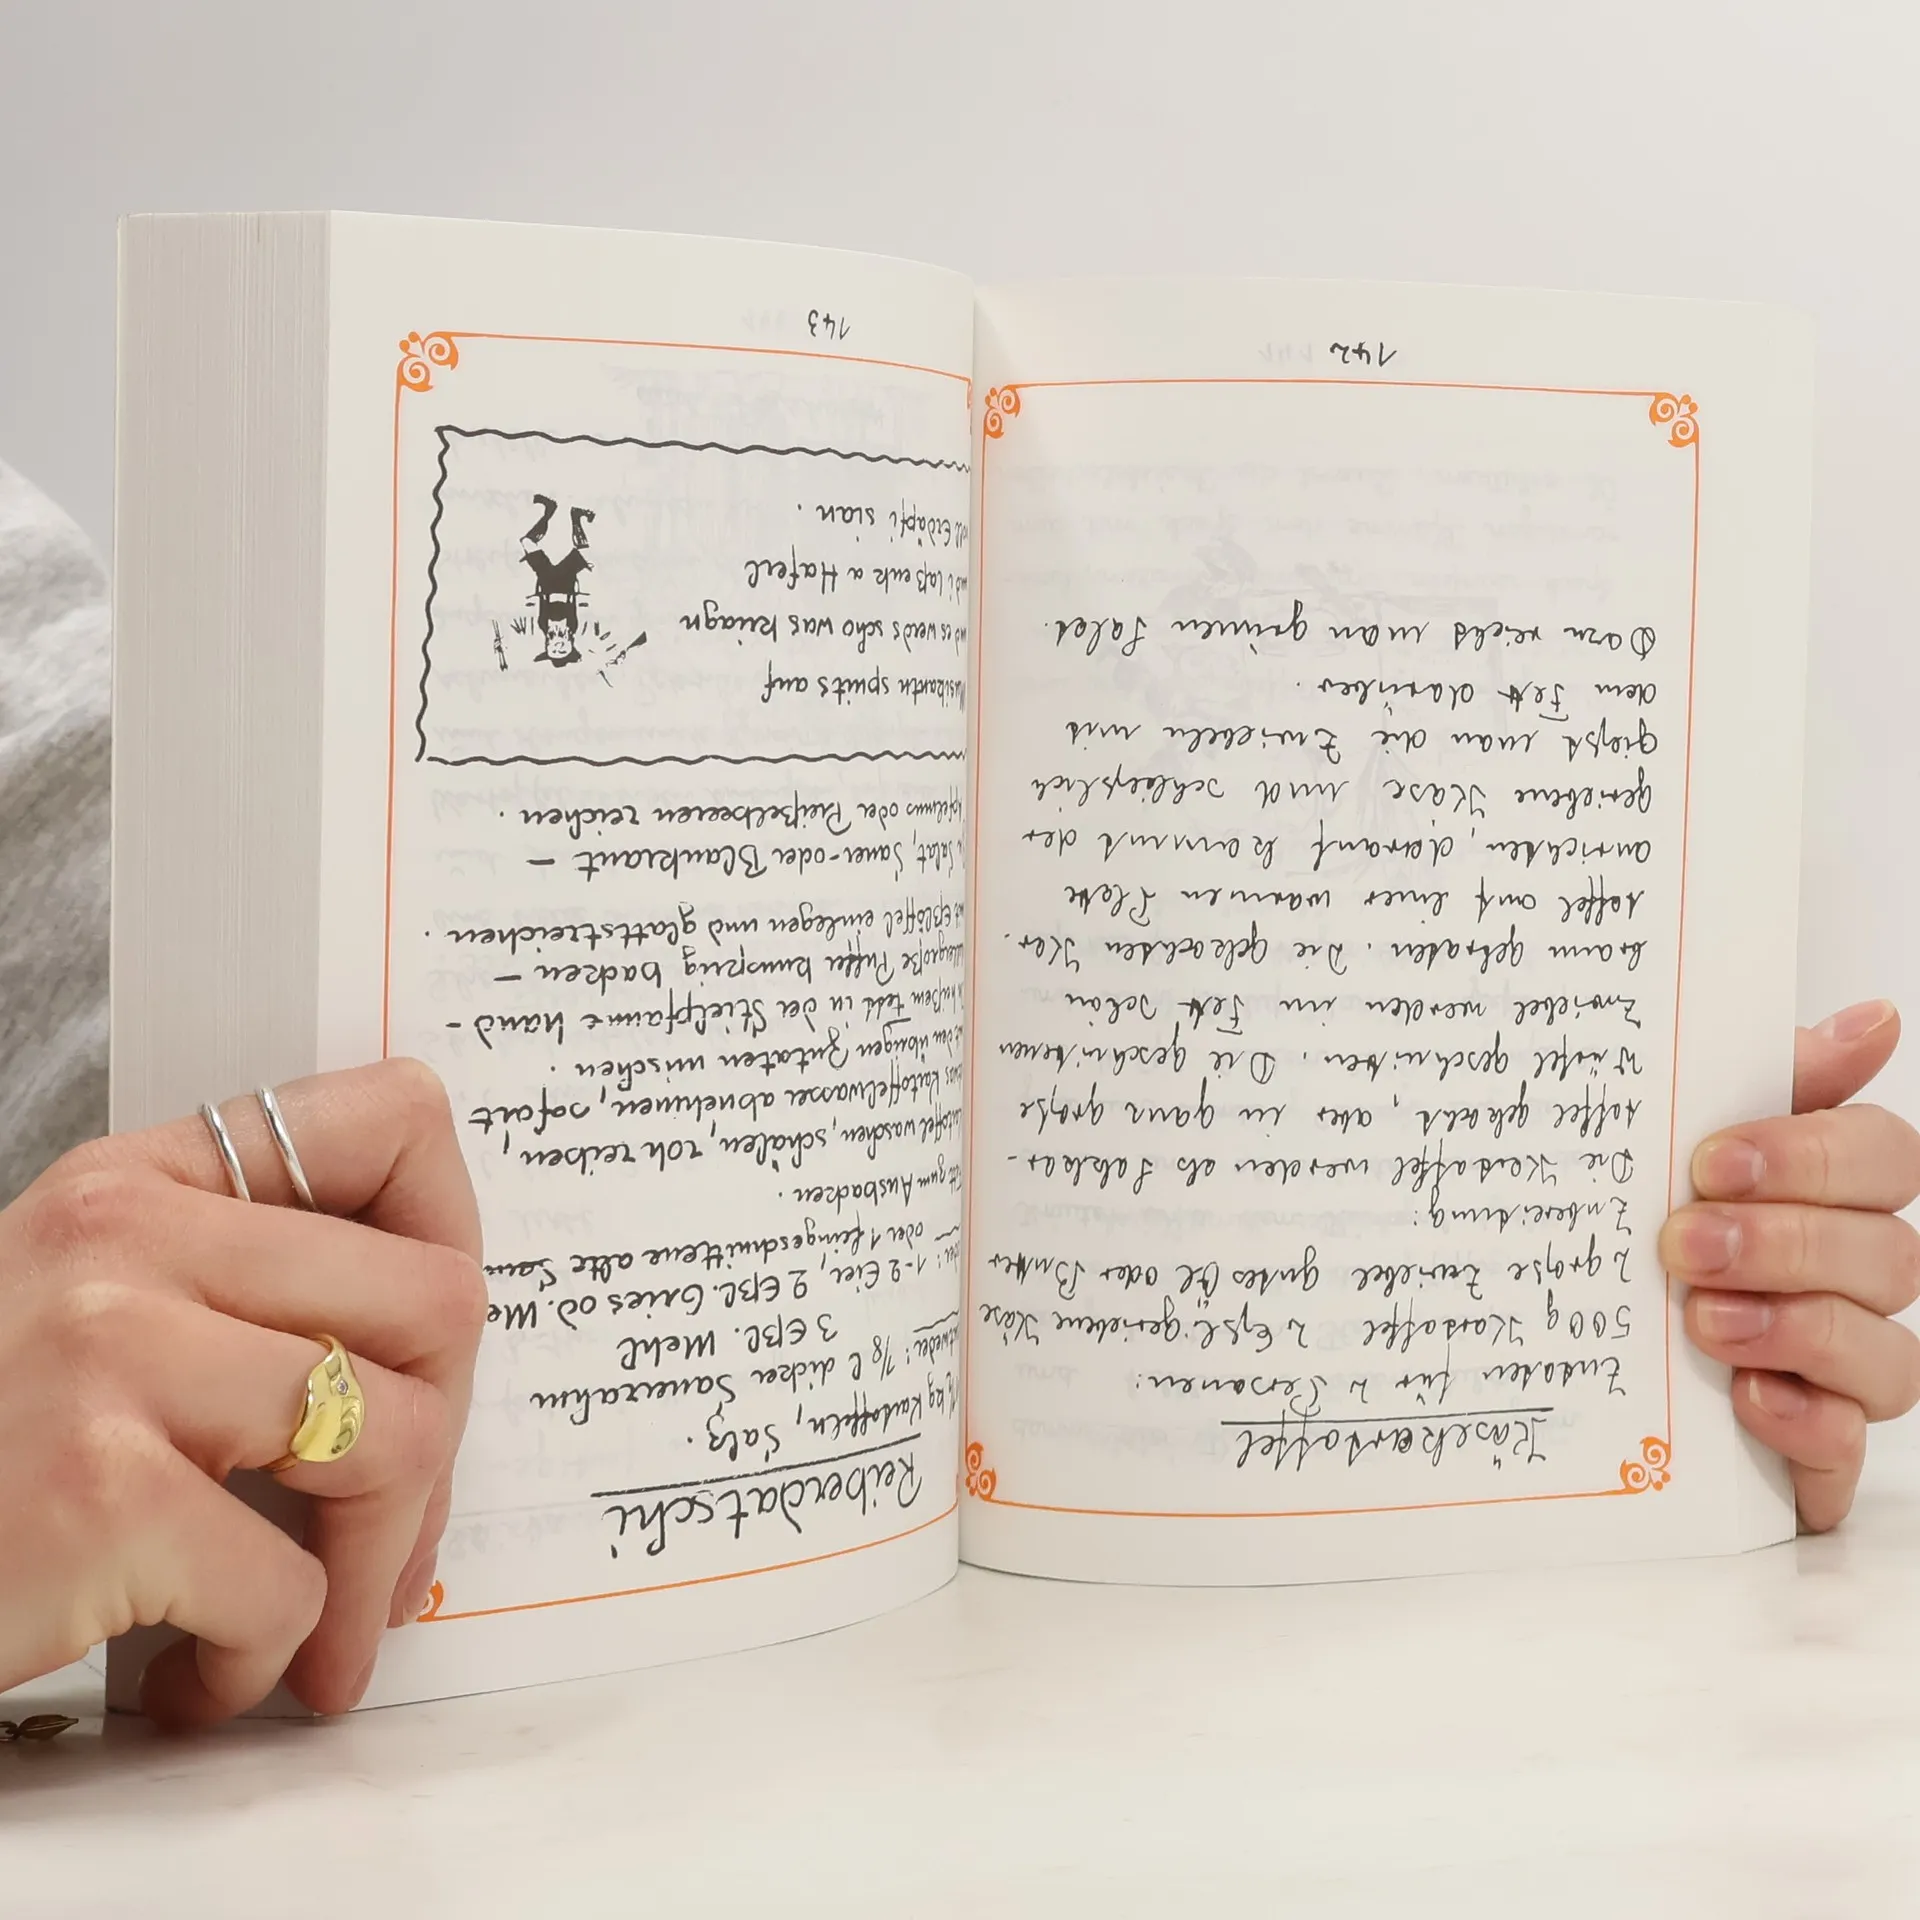 Käsekartoffel
Zutaten für 2 Personen:
500 g Kartoffel 2 Eßl. geriebene Käse
2 große Zwiebel gutes Öl oder Butter
Zubereitung:
Die Kartoffel werden als Salzkar-
toffel gekocht, aber in ganz große
Würfel geschnitten. Die geschnittenen
Zwiebel werden in Fett schön
braun gebraten. Die gekochten Kar-
toffel auf einer warmen Platte
anrichten, darauf kommt der
geriebene Käse und schließlich
gießt man die Zwiebeln mit
dem Fett darüber.
Dazu reicht man grünen Salat.
142
Reiberdatschi
kg Kartoffeln, Salz.
7/8 l dicker Sauerrahm
3 Eßl. Mehl
1-2 Eier, 2 Eßl. Gries od. Me
oder 1 feingeschnittene alte Sem
zum Ausbacken.
waschen, schälen, roh reiben,
Kartoffelwasser abnehmen, sofort
den übrigen Zutaten mischen.
heißem Fett in der Stielpfanne hand-
große Puffer knusprig backen –
Eßlöffel einlegen und glattstreichen.
Salat, Sauer- oder Blaukraut –
oder Preißelbeeren reichen.
Musikantn spuits auf
es werds scho was kriagn
i laß enk a Haferl
Erdäpfi sian.
143